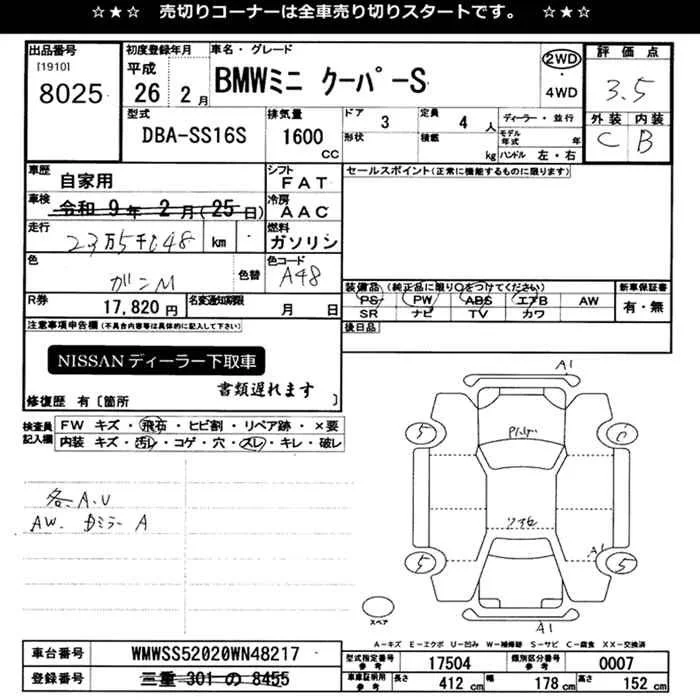 ☆★☆ 売切りコーナーは全車売り切りスタートです。 ☆★☆
出品番号
[1910]
8025
初度登録年月
平成
26 2月
車名・グレード
BMWミニ クーパーS
2WD
・
4WD
評価点
3.5
外装 内装
C B
型式
DBA-SS16S
排気量
1600
CC
ドア
3
形状
定員
4人
積載
kg
ディーラー・並行
モデル年式 年
ハンドル 左・右
車歴
自家用
車検
令和 9年 2月(25日)
走行
23万5千048 km
色
ガンM
色替
シフト
FAT
冷房
AAC
燃料
ガソリン
色コード
A48
セールスポイント(正常に機能するものに限ります)
装備品(純正品に限り○をつけてください)
PS PW ABS エアB AW
SR ナビ TV カワ
新車保証書
有・無
後日品
R券
17,820円
名変通知期限
月 日
注意事項申告欄(不具合内容等は具体的に記入して下さい)
NISSANディーラー下取車
書類遅れます
修復歴 有〔箇所 〕
検査員
記入欄
FW キズ・飛石・ヒビ割・リペア跡・×要
内装 キズ・汚レ・コゲ・穴・スレ・キレ・破レ
各A.U
AW. Dミラー A
A1
5
C
5
5
A1
A1
スペア
A-キズ E-エクボ U-凹み W-補修跡 S-サビ C-腐食 XX-交換済
車台番号
WMWSS52020WN48217
登録番号
三重 301 の 8455
型式指定番号
参考
17504
類別区分番号
参考
0007
車庫証明用
参考
長さ
412 cm
幅
178 cm
高さ
152 cm